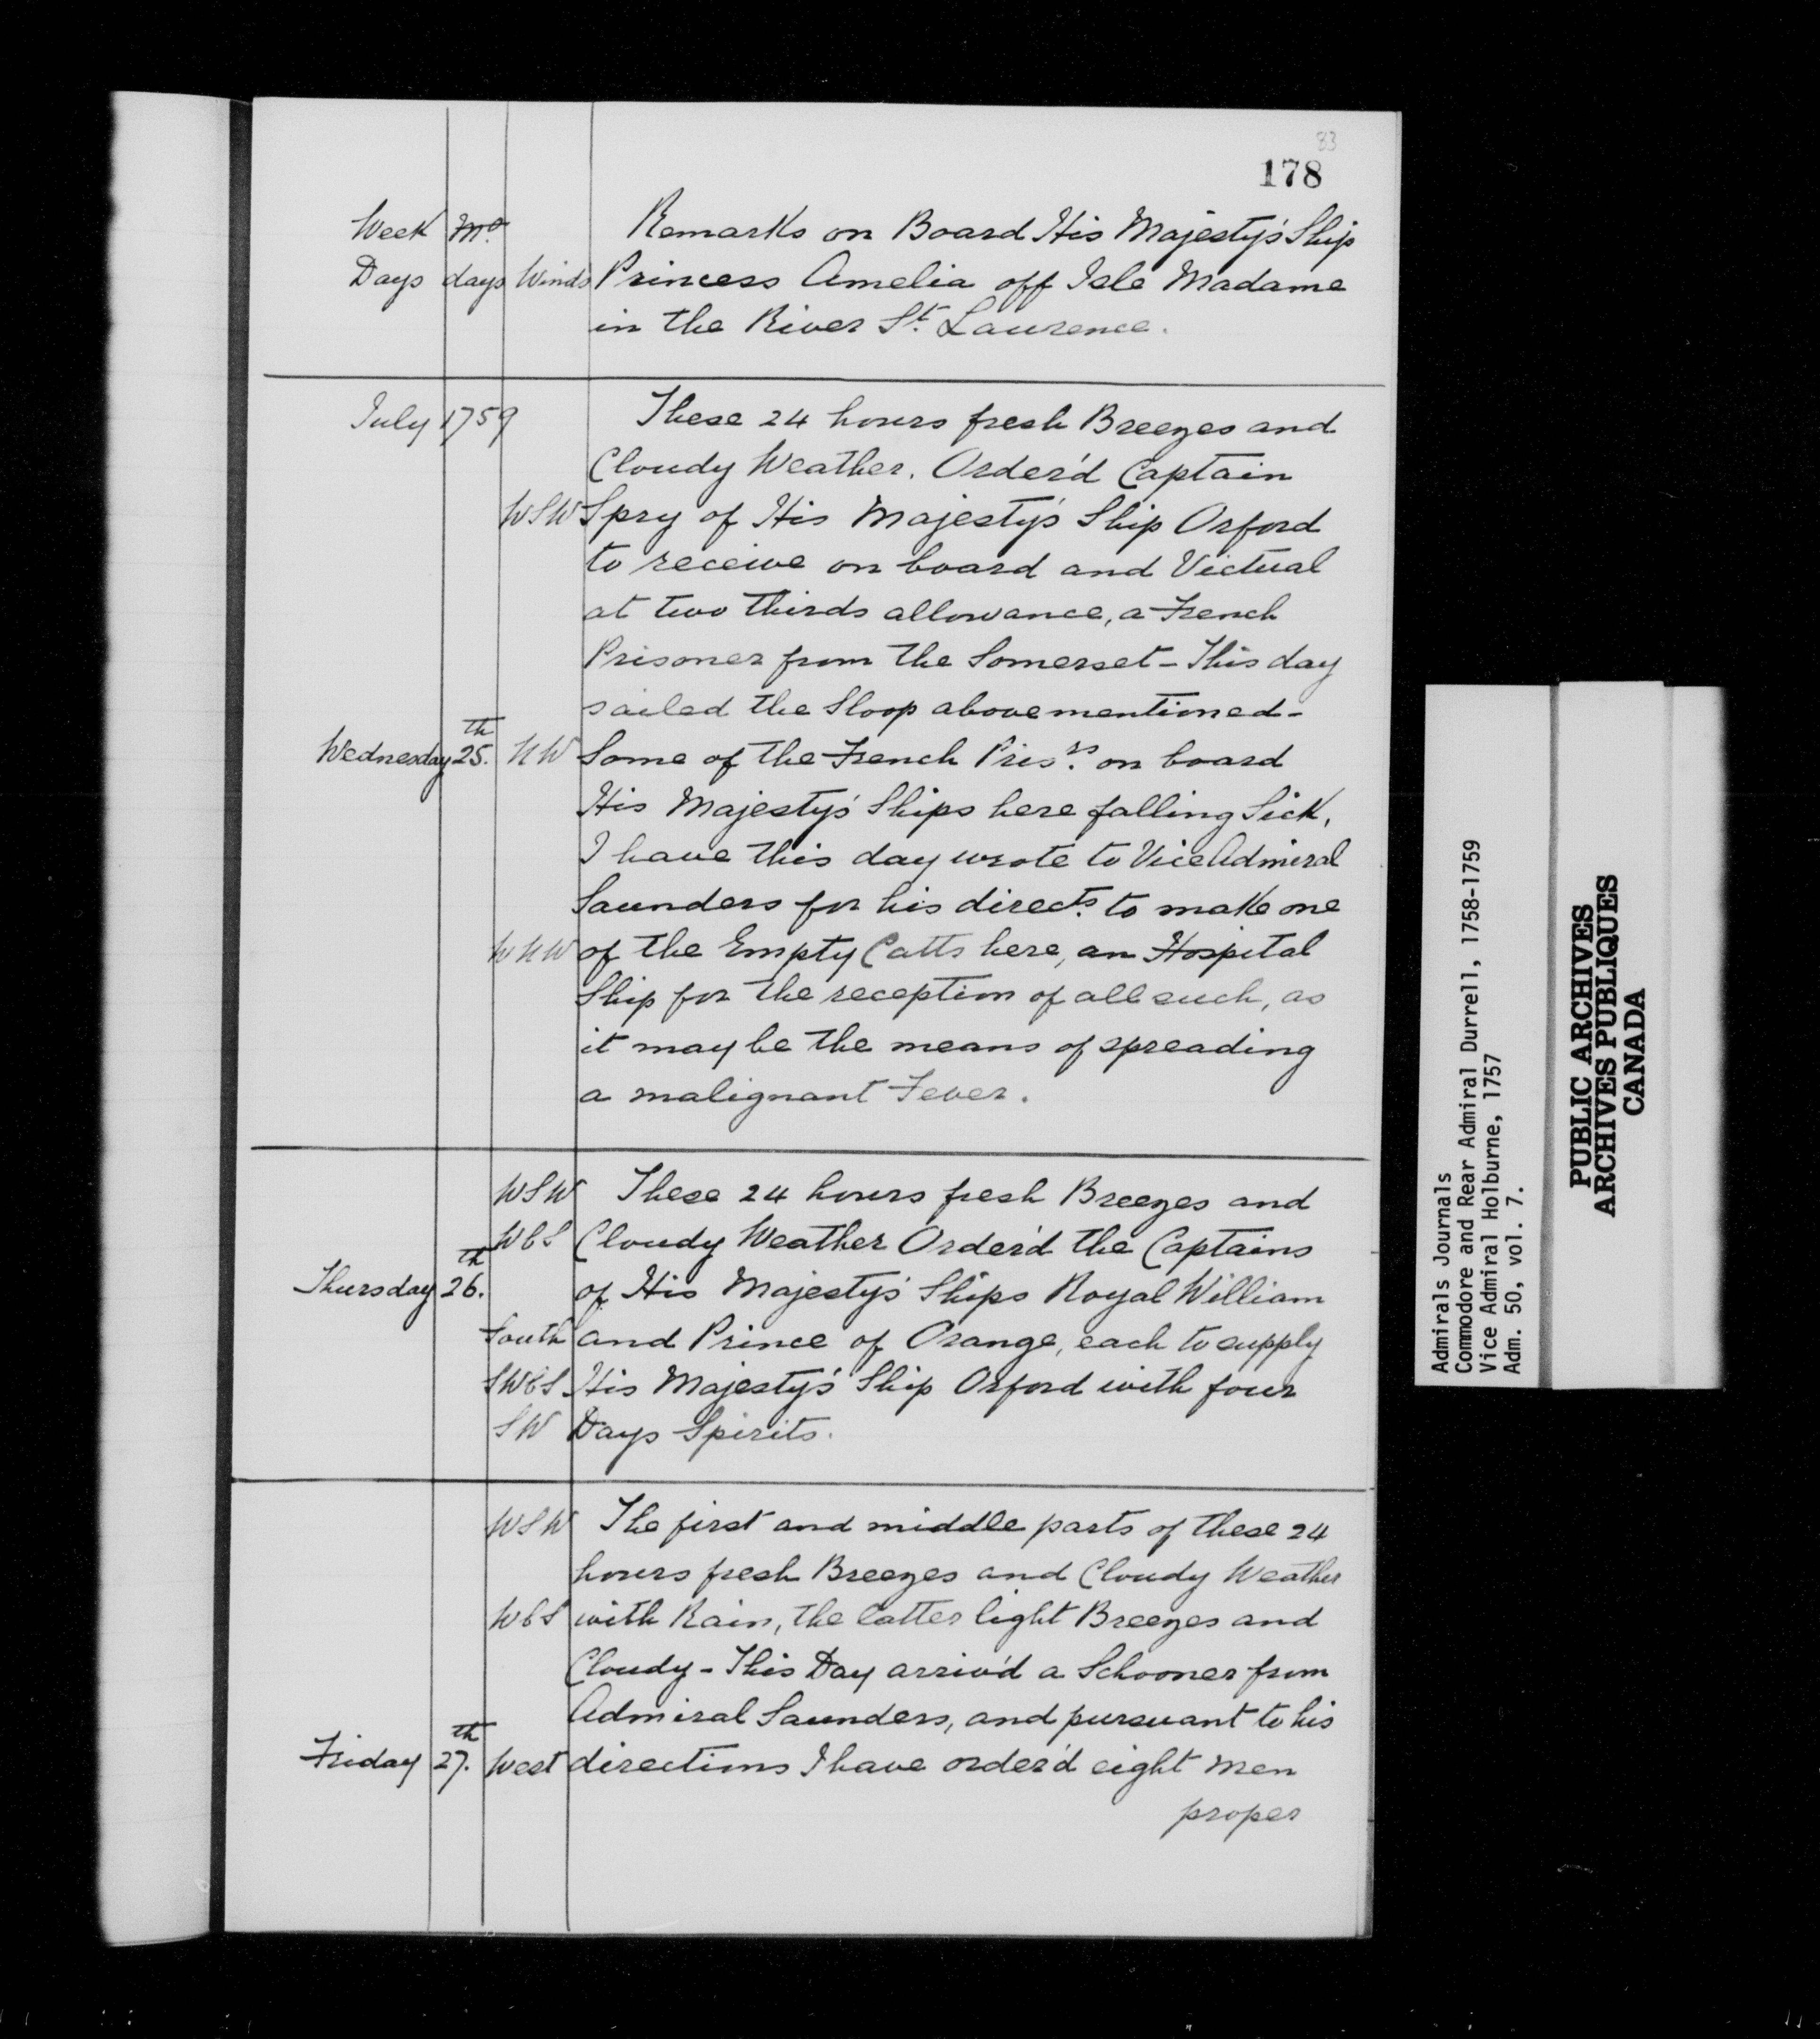 83
178
Week Mo. Remarks on Board His Majesty's Ship
Days days Winds Princess Amelia off Isle Madame
in the River St. Laurence.
July 1759 These 24 hours fresh Breezes and
Cloudy Weather. Order'd Captain
WSW Spry of His Majesty's Ship Orford
to receive on board and Victual
at two thirds allowance, a French
Prisoner from the Somerset - This day
sailed the Sloop abovementioned -
Wednesday 25th. NW Some of the French Prisrs. on board
His Majesty's Ships here falling Sick,
I have this day wrote to Vice Admiral
Saunders for his directs. to make one
WNW of the Empty Catts here, an Hospital
Ship for the reception of all such, as
it may be the means of spreading
a malignant Fever.
WSW These 24 hours fresh Breezes and
WbS Cloudy Weather Order'd the Captains
Thursday 26th. of His Majesty's Ships Royal William
South and Prince of Orange, each to supply
SWbS His Majesty's Ship Orford with four
SW Days Spirits.
WSW The first and middle parts of these 24
hours fresh Breezes and Cloudy Weather
WbS with Rain, the latter light Breezes and
Cloudy - This Day arriv'd a Schooner from
Admiral Saunders, and pursuant to his
Friday 27th. West directions I have order'd eight men
proper
Admirals Journals
Commodore and Rear Admiral Durrell, 1758-1759
Vice Admiral Holburne, 1757
Adm. 50, vol. 7.
PUBLIC ARCHIVES
ARCHIVES PUBLIQUES
CANADA